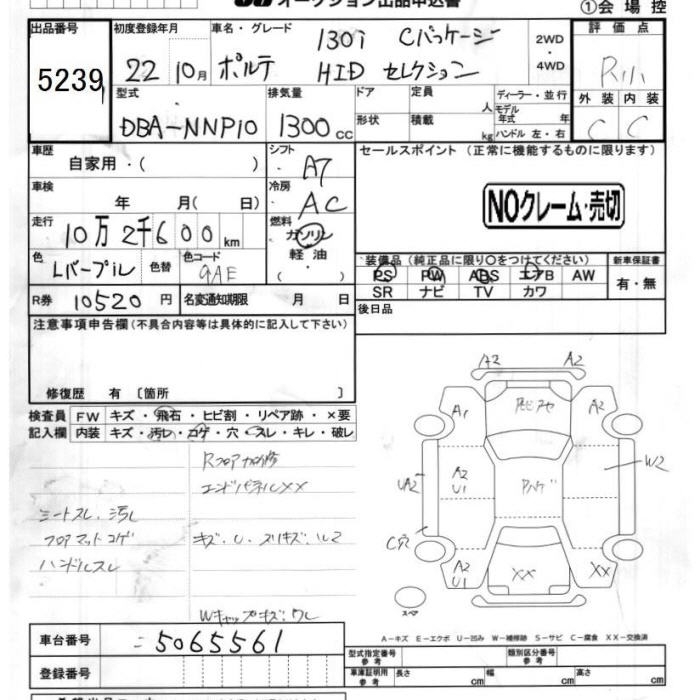 オークション出品申込書
①会場控
出品番号 初度登録年月 車名・グレード 130i Cパッケージ 2WD 評価点
5239 22 10月 ポルテ HID セレクション ・ 4WD R
型式 排気量 ドア 定員 人 ディーラー・並行 外装 内装
DBA-NNP10 1300cc 形状 積載 kg モデル年式 年 ハンドル 左・右 C C
車歴 自家用・( ) シフト A7 セールスポイント (正常に機能するものに限ります)
車検 年 月( 日) 冷房 AC NOクレーム・売切
走行 10万2千600km 燃料 ガソリン 軽油
装備品 (純正品に限り○をつけてください) 新車保証書
色 Lパープル 色替 色コード 9AE PS PW ABS エアB AW 有・無
SR ナビ TV カワ
R券 10520円 名変通知期限 月 日 後日品
注意事項申告欄 (不具合内容等は具体的に記入して下さい)
修復歴 有 〔箇所 〕
検査員 FW キズ・飛石・ヒビ割・リペア跡・×要
記入欄 内装 キズ・汚レ・コゲ・穴・スレ・キレ・破レ
Rフロア
エンドパネルXX
シートスレ、汚レ
フロアマットコゲ キズ・U
ハンドルスレ
Wキャップキズ
A2 A2
A1 A2
A2 U1 W2
UA2
C穴
A2 U1 XX XX
スペア
A-キズ E-エクボ U-凹み W-補修跡 S-サビ C-腐食 XX-交換済
車台番号 5065561
型式指定番号 参考 類別区分番号 参考
登録番号 車庫証明用 参考 長さ cm 幅 cm 高さ cm